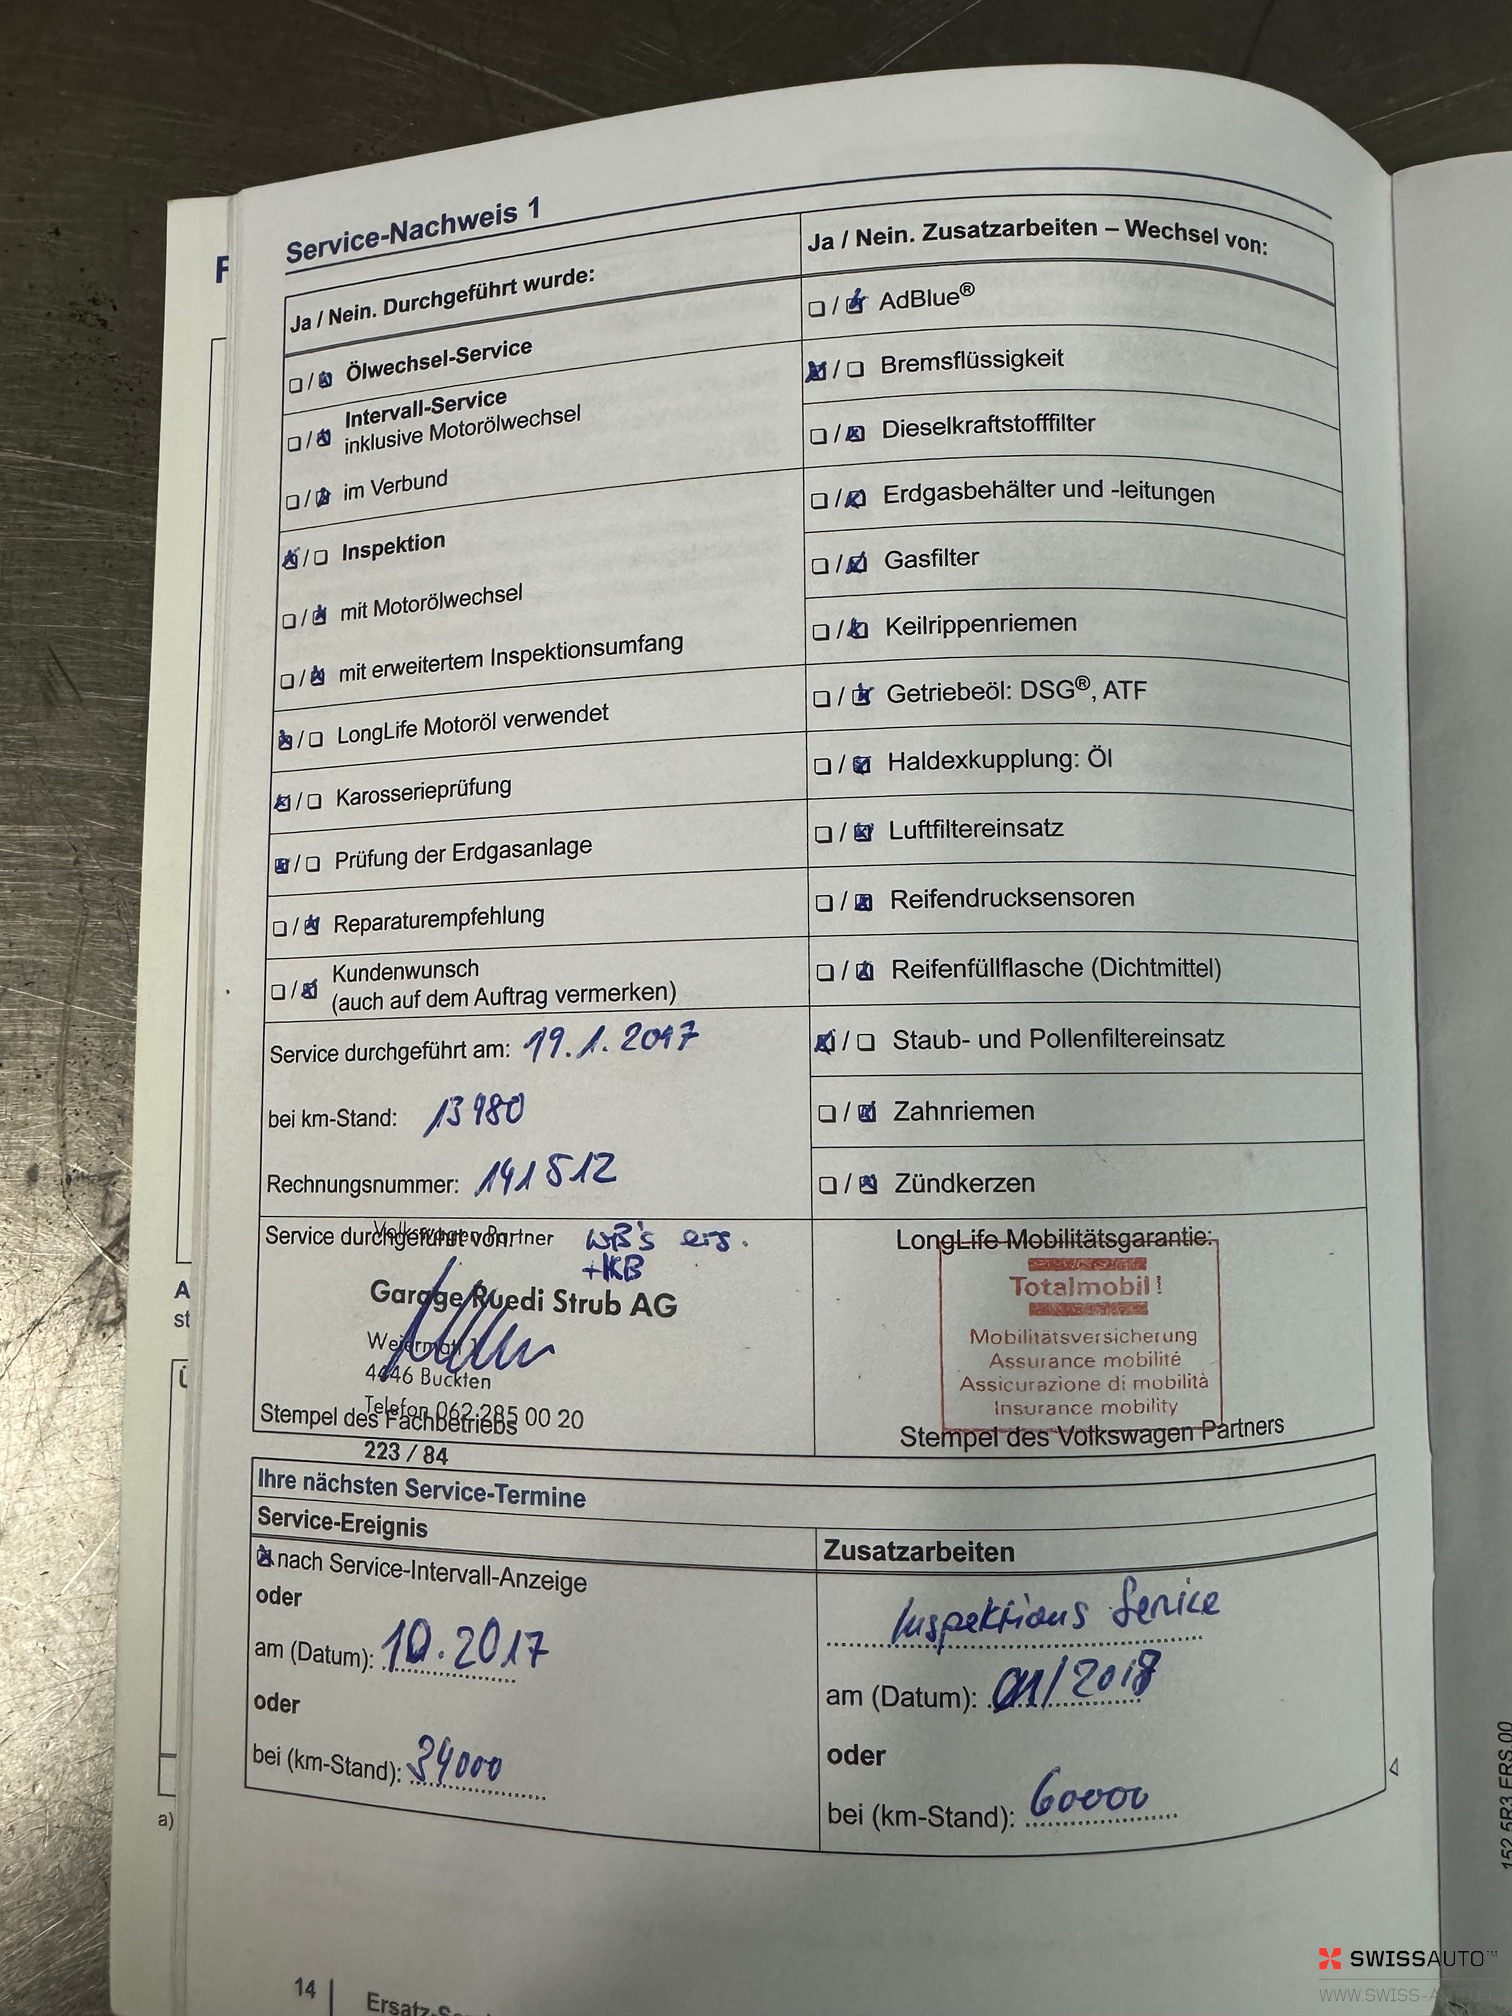 Service-Nachweis 1
Ja / Nein. Durchgeführt wurde:
Ölwechsel-Service
Intervall-Service
inklusive Motorölwechsel
im Verbund
Inspektion
mit Motorölwechsel
mit erweitertem Inspektionsumfang
LongLife Motoröl verwendet
Karosserieprüfung
Prüfung der Erdgasanlage
Reparaturempfehlung
Kundenwunsch
(auch auf dem Auftrag vermerken)
Service durchgeführt am: 19.1.2017
bei km-Stand: 13980
Rechnungsnummer: 141512
Service durchgeführt von:
Volkswagen Partner
WB's ers.
+KB
Garage Ruedi Strub AG
4446 Buckten
Telefon 062 285 00 20
Stempel des Fachbetriebs
223 / 84
Ja / Nein. Zusatzarbeiten – Wechsel von:
AdBlue®
Bremsflüssigkeit
Dieselkraftstofffilter
Erdgasbehälter und -leitungen
Gasfilter
Keilrippenriemen
Getriebeöl: DSG®, ATF
Haldexkupplung: Öl
Luftfiltereinsatz
Reifendrucksensoren
Reifenfüllflasche (Dichtmittel)
Staub- und Pollenfiltereinsatz
Zahnriemen
Zündkerzen
LongLife Mobilitätsgarantie:
Totalmobil!
Mobilitätsversicherung
Assurance mobilité
Assicurazione di mobilità
Insurance mobility
Stempel des Volkswagen Partners
Ihre nächsten Service-Termine
Service-Ereignis
nach Service-Intervall-Anzeige
oder
am (Datum): 10.2017
oder
bei (km-Stand): 34000
Zusatzarbeiten
Inspektions Service
am (Datum): 01/2018
oder
bei (km-Stand): 60000
14
a)
152.5R3.ERS.00
SWISSAUTO™